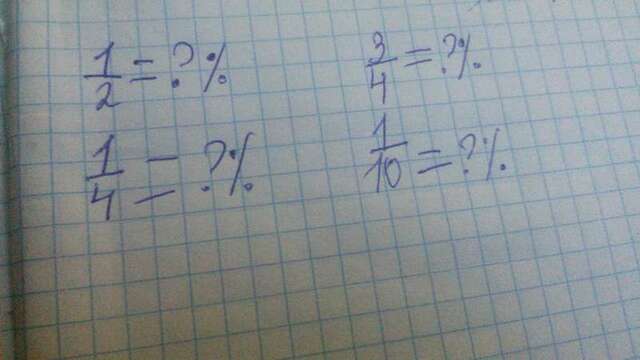 1/2 = ?%
3/4 = ?%
1/4 = ?%
1/10 = ?%